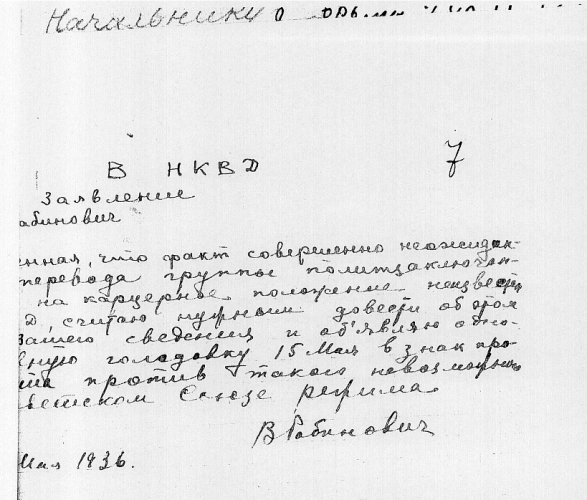 Начальнику
7
В НКВД
Заявление
абинович
нная, что факт совершенно неожидан-
перевода группы политзаключен-
на карцерное положение неизвестн
Д, считаю нужным довести об этом
Вашего сведения и об'являю одно-
вную голодовку 15 Мая в знак про-
та против такого невозможного
ветском Союзе режима
В Рабинович
Мая 1936.